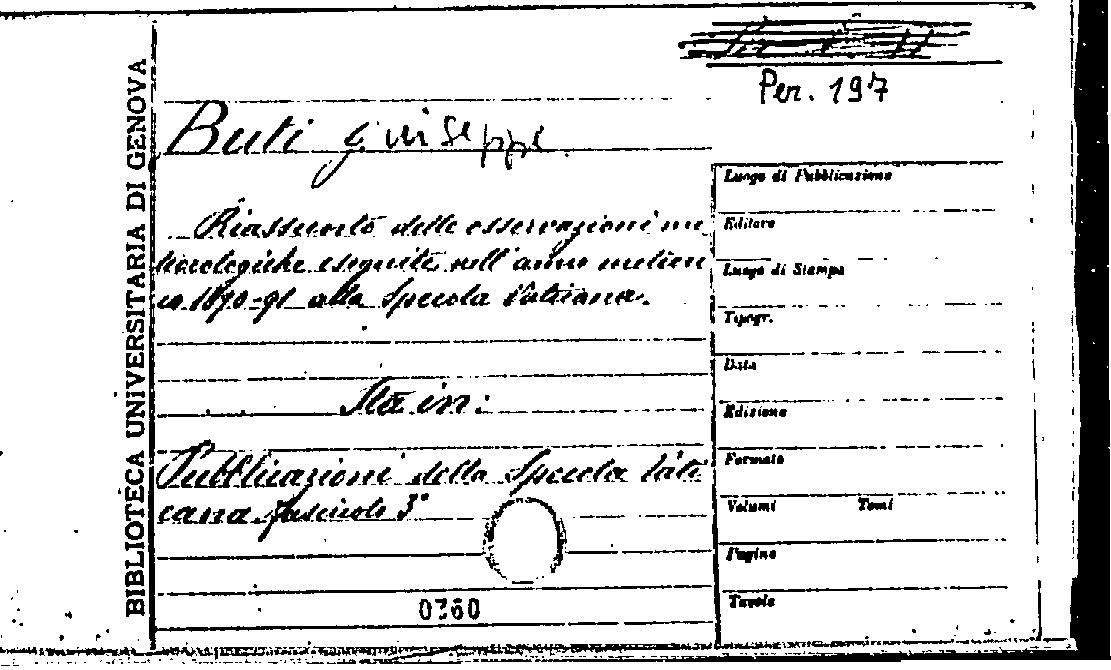 Per. 197
BIBLIOTECA UNIVERSITARIA DI GENOVA
Buti Giuseppe
Riassunto delle osservazioni me
teorologiche eseguite nell'anno meteori
co 1890-91 alla Specola Vaticana.
Sta in:
Pubblicazioni della Specola Vati
cana fascicolo 3°
0360
Luogo di Pubblicazione
Editore
Luogo di Stampa
Tipogr.
Data
Edizione
Formato
Volumi Tomi
Pagine
Tavole